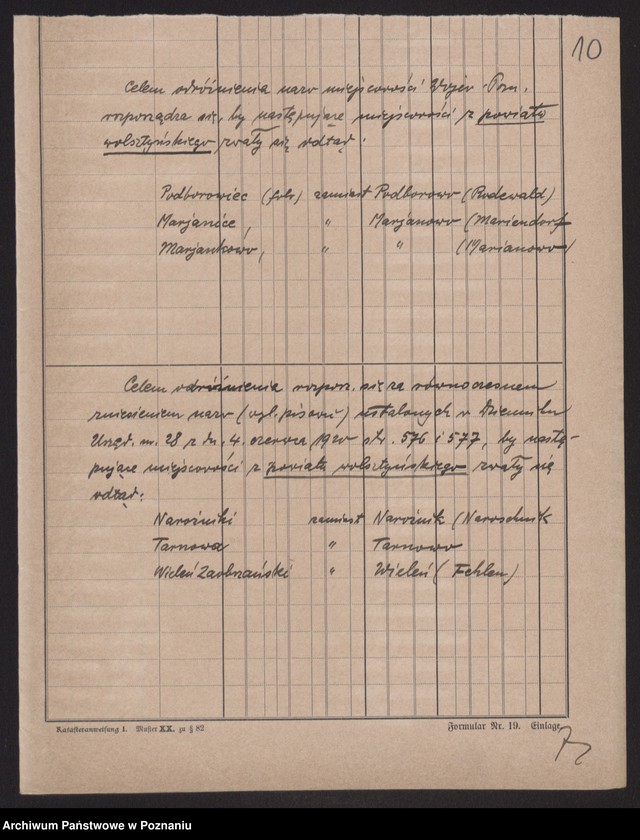 10
Celem odróżnienia nazw miejscowości Wojew. Pozn.
rozporządza się, by następujące miejscowości z powiatu
wolsztyńskiego zwały się odtąd:
Podborowiec (folw) zamiast Podborowo (Rodewald)
Marjanice, " Marjanowo (Mariendorf
Marjankowo, " " (Marianowo)
Celem odróżnienia rozporz. się za równoczesnem
zniesieniem nazw (wzgl. pisowń) ustalonych w Dzienniku
Urzęd. nr. 28 z dn. 4. czerwca 1920 str. 576 i 577, by nastę-
pujące miejscowości z powiatu wolsztyńskiego zwały się
odtąd:
Narożniki zamiast Narożnik (Naroschnik
Tarnowa " Tarnowo
Wieleń Zaobrzański " Wieleń (Fehlen)
Katasteranweisung I. Muster XX. zu § 82
Formular Nr. 19. Einlage
Archiwum Państwowe w Poznaniu